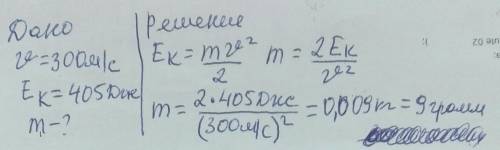 Дано
v=300м/с
Eк=405Дж
m-?
Решение
Eк=mv²/2 m=2Eк/v²
m=2•405Дж/(300м/с)²=0,009m=9грамм